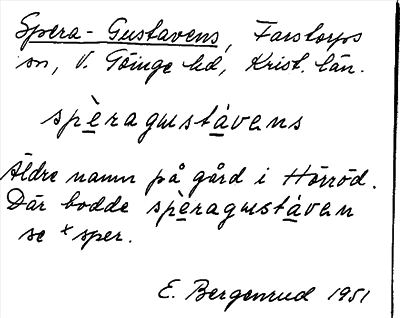 Spera-Gustavens, Farstorps
sn, V. Göinge hd, Krist. län.
spèragustávens
Äldre namn på gård i Hörröd.
Där bodde spèragustáven
se × sper.
E. Bergenrud 1951